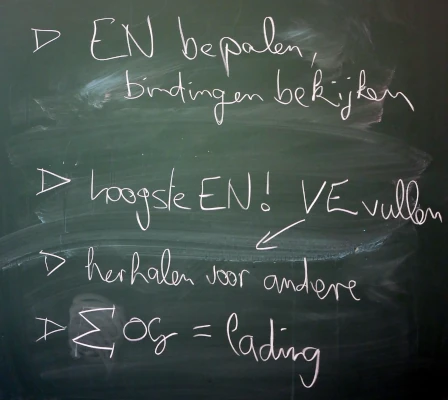 ▷ EN bepalen,
bindingen bekijken
▷ hoogste EN! VE vullen
▷ herhalen voor andere
▷ ∑ OG = lading